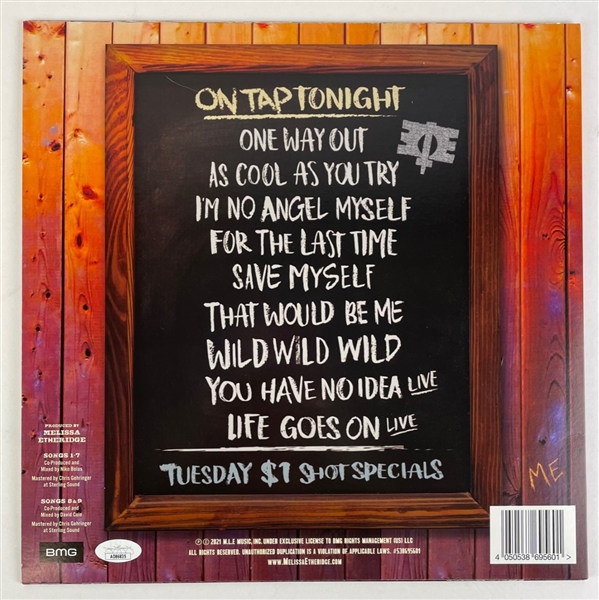 ON TAP TONIGHT
ONE WAY OUT
AS COOL AS YOU TRY
I'M NO ANGEL MYSELF
FOR THE LAST TIME
SAVE MYSELF
THAT WOULD BE ME
WILD WILD WILD
YOU HAVE NO IDEA LIVE
LIFE GOES ON LIVE
TUESDAY $1 SHOT SPECIALS
PRODUCED BY
MELISSA
ETHERIDGE
SONGS 1-7
Co-Produced and
Mixed by Niko Bolas
Mastered by Chris Gehringer
at Sterling Sound
SONGS 8 & 9
Co-Produced and
Mixed by David Cole
Mastered by Chris Gehringer
at Sterling Sound
BMG
ME
℗ © 2021 M.L.E MUSIC, INC. UNDER EXCLUSIVE LICENSE TO BMG RIGHTS MANAGEMENT (US) LLC
ALL RIGHTS RESERVED. UNAUTHORIZED DUPLICATION IS A VIOLATION OF APPLICABLE LAWS. #538695601
WWW.MELISSAETHERIDGE.COM
4 050538 695601 >